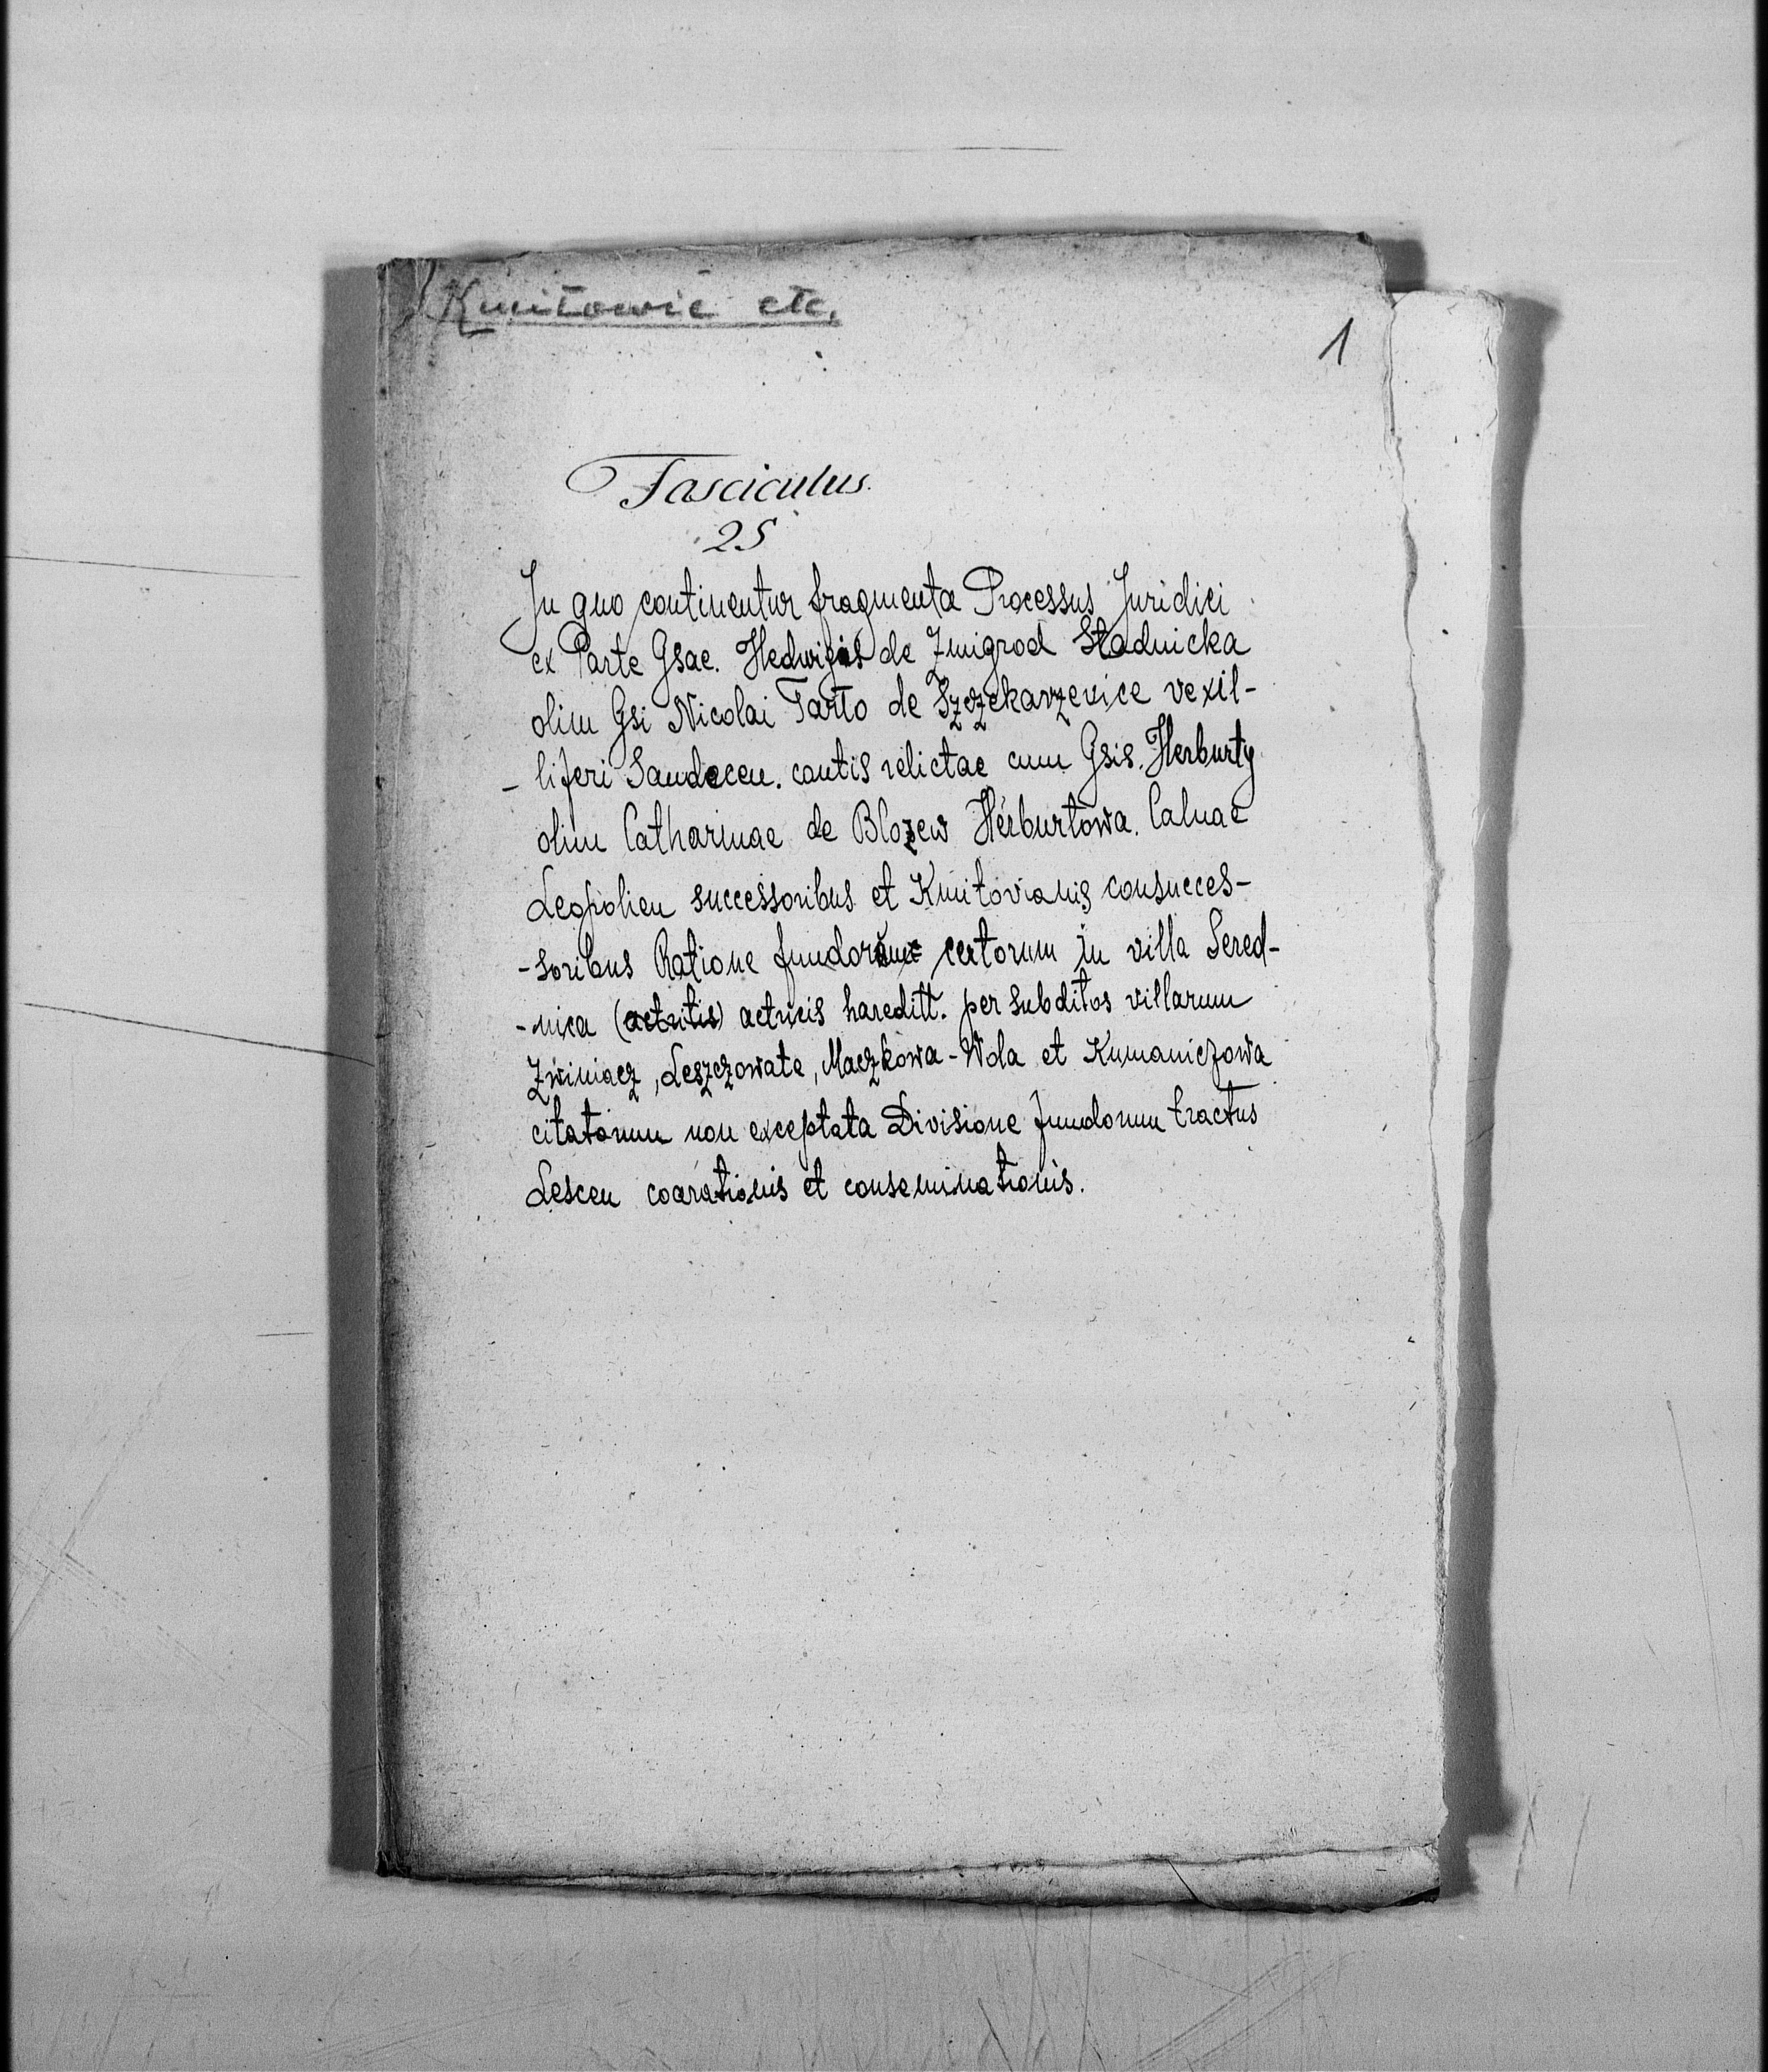 Kmitowie etc.
1
Fasciculus.
25
In quo continentur fragmenta Processus Juridici
ex Parte Gsae. Hedwigis de Zmigrod Stadnicka
olim Gsi Nicolai Tarło de Szczekarzevice vexil-
- liferi Sandecen. contis relictae cum Gsis. Herburty
olim Catharinae de Blozew Herburtowa. Calnae
Leopolien successoribus et Kmitovianis consucces-
- soribus Ratione fundorum certorum in villa Sered-
- nica (actritis) actricis hareditt. per subditos villarum
Zwiniacz, Leszczowate, Maczkowa-Wola et Kumaniczowa
citatorum non exceptata Divisione fundorum tractus
Lescen coarationis et conseminationis.